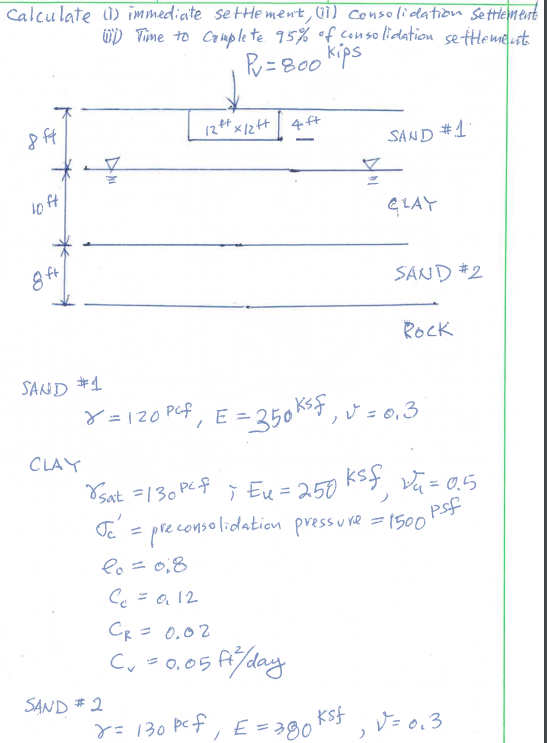 Calculate (i) immediate settlement, (ii) Consolidation Settlement
(iii) Time to Complete 95% of consolidation settlement
Pv = 800 kips
8 ft
12 ft x 12 ft 4 ft
SAND #1
10 ft
CLAY
8 ft
SAND #2
ROCK
SAND #1
γ = 120 pcf, E = 350 ksf, ν = 0.3
CLAY
γsat = 130 pcf ; Eu = 250 ksf, νu = 0.5
σc' = preconsolidation pressure = 1500 psf
e₀ = 0.8
Cc = 0.12
CR = 0.02
Cv = 0.05 ft²/day
SAND #2
γ = 130 pcf, E = 380 ksf, ν = 0.3